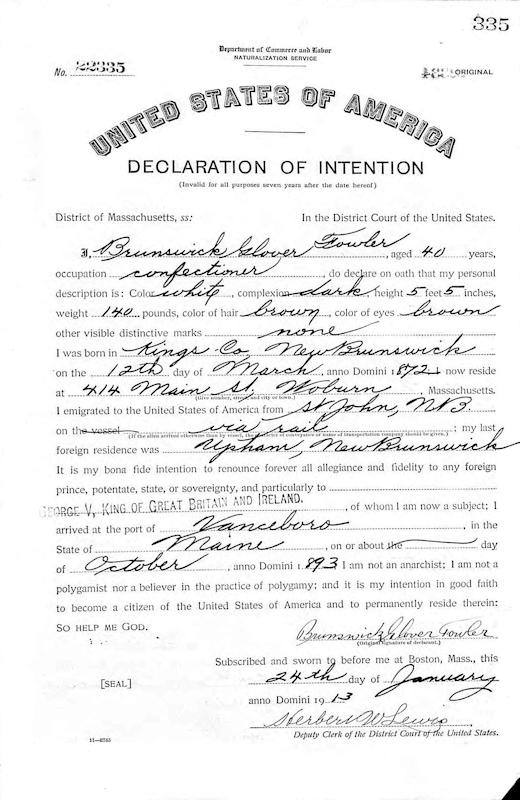 335
Department of Commerce and Labor
NATURALIZATION SERVICE
No. 22335
ORIGINAL
UNITED STATES OF AMERICA
DECLARATION OF INTENTION
(Invalid for all purposes seven years after the date hereof)
District of Massachusetts, ss: In the District Court of the United States.
I, Brunswick Glover Fowler, aged 40 years,
occupation confectioner, do declare on oath that my personal
description is: Color white, complexion dark, height 5 feet 5 inches,
weight 140 pounds, color of hair brown, color of eyes brown
other visible distinctive marks none
I was born in Kings Co, New Brunswick
on the 12th day of March, anno Domini 1872, now reside
at 414 Main St, Woburn, Massachusetts.
(Give number, street, and city or town.)
I emigrated to the United States of America from St. John, N.B.
on the vessel via rail; my last
(If the alien arrived otherwise than by vessel, the character of conveyance or name of transportation company should be given.)
foreign residence was Upham, New Brunswick
It is my bona fide intention to renounce forever all allegiance and fidelity to any foreign
prince, potentate, state, or sovereignty, and particularly to
GEORGE V, KING OF GREAT BRITAIN AND IRELAND, of whom I am now a subject; I
arrived at the port of Vanceboro, in the
State of Maine, on or about the day
of October, anno Domini 1893 I am not an anarchist; I am not a
polygamist nor a believer in the practice of polygamy; and it is my intention in good faith
to become a citizen of the United States of America and to permanently reside therein:
SO HELP ME GOD.
Brunswick Glover Fowler
(Original signature of declarant.)
Subscribed and sworn to before me at Boston, Mass., this
[SEAL] 24th day of January
anno Domini 1913
Herbert W Lewis
Deputy Clerk of the District Court of the United States.